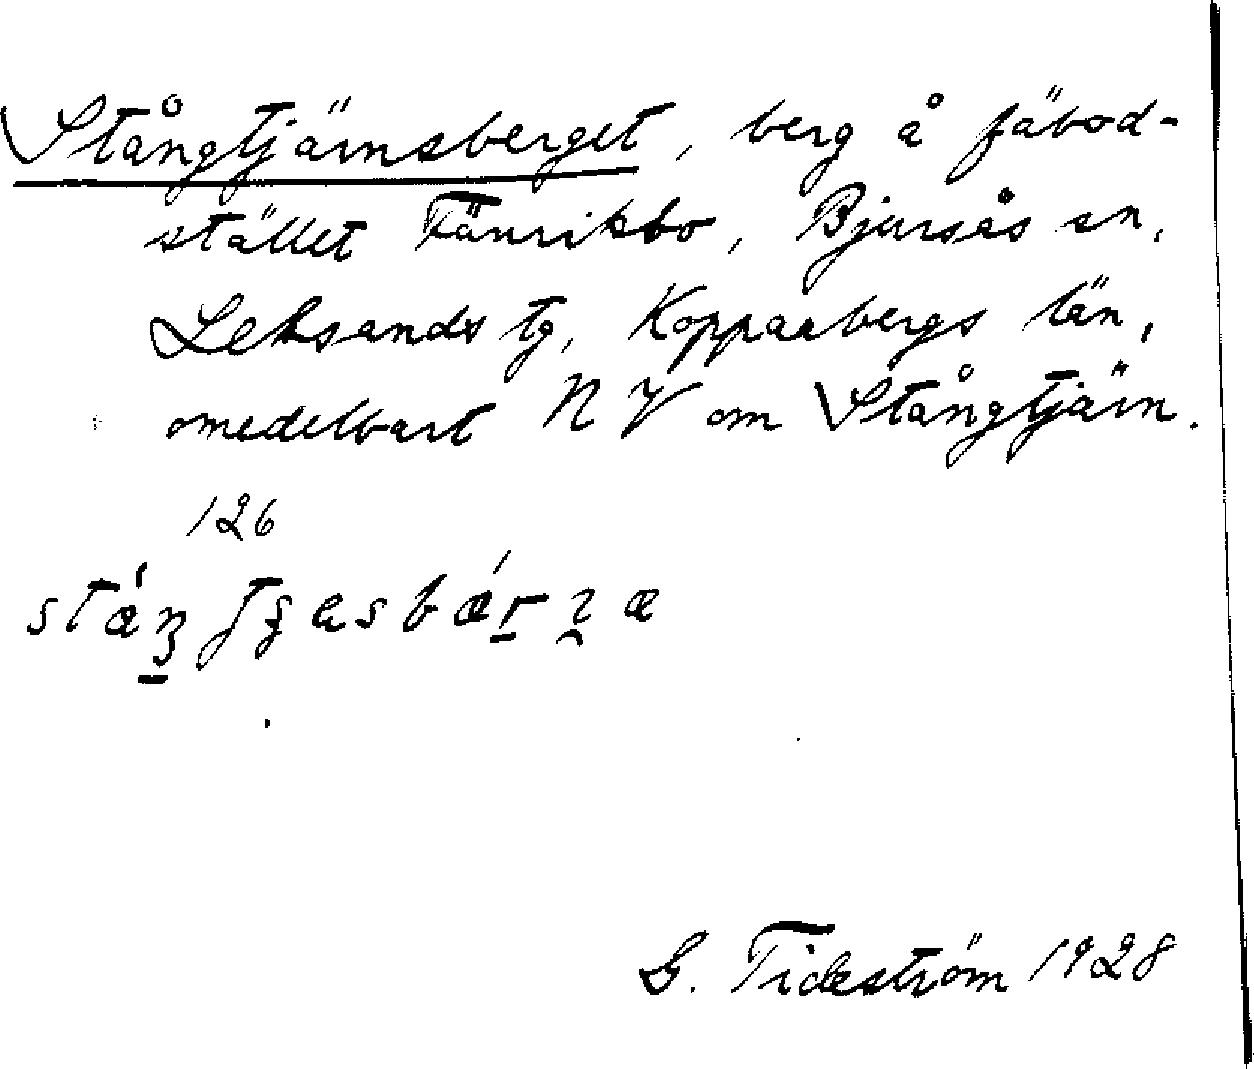 Stångtjärnsberget, berg å fäbod-
stället Fänriksbo, Bjursås sn,
Leksands tg, Kopparbergs län,
omedelbart NV om Stångtjärn.
126
G. Tideström 1928